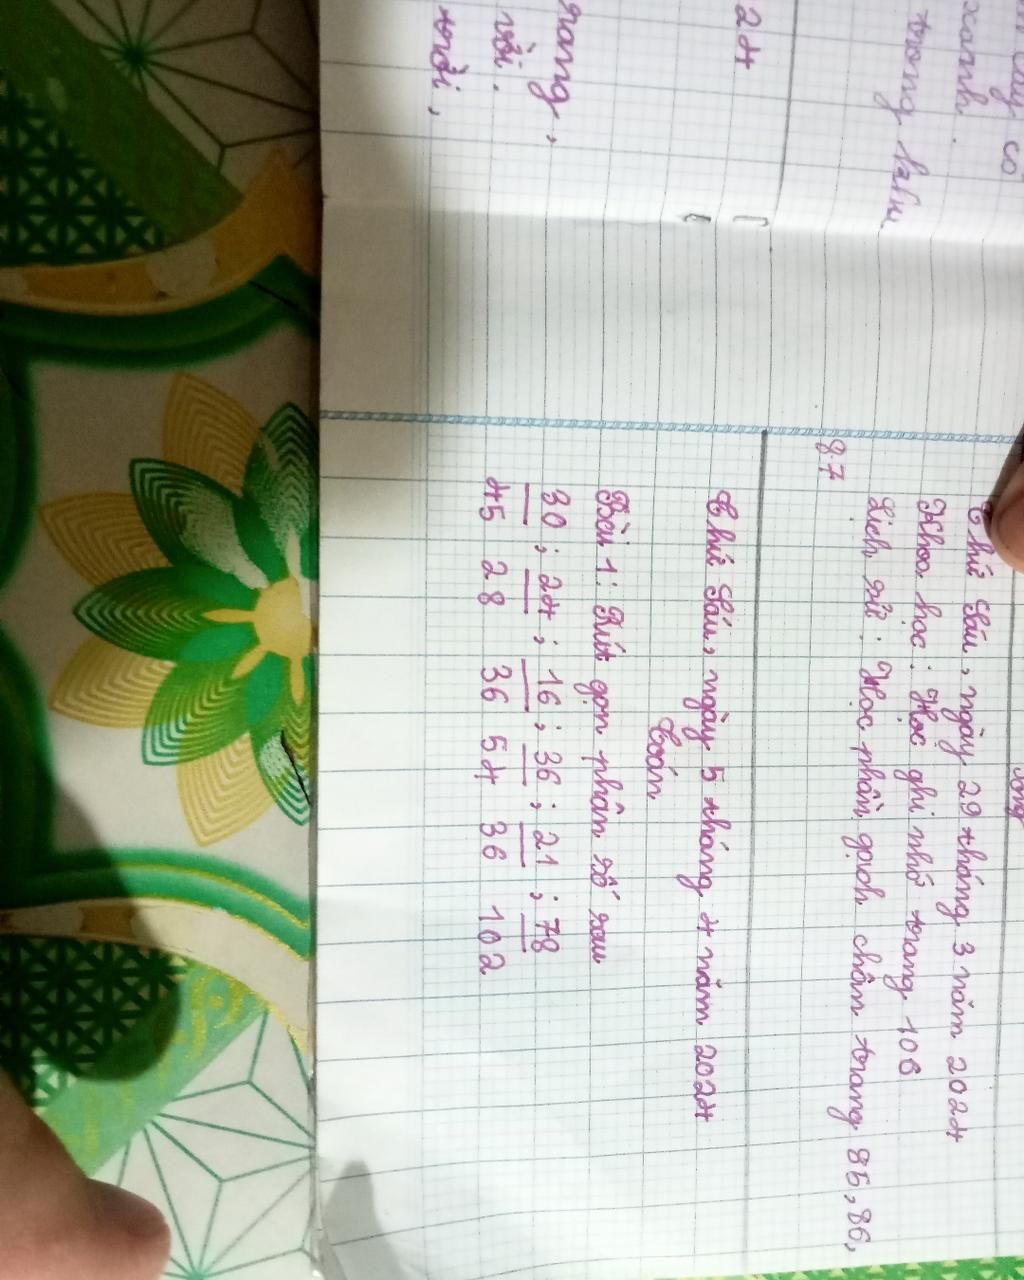 24
rang,
rồi.
trời,
xanh.
trong
có
Thứ Sáu, ngày 29 tháng 3 năm 2024
Khoa học: Học ghi nhớ trang 106
Lịch sử: Học phần gạch chân trang 85, 86,
87
Thứ Sáu, ngày 5 tháng 4 năm 2024
Toán
Bài 1: Rút gọn phân số sau
30 ; 24 ; 16 ; 36 ; 21 ; 78
45 28 36 54 36 102